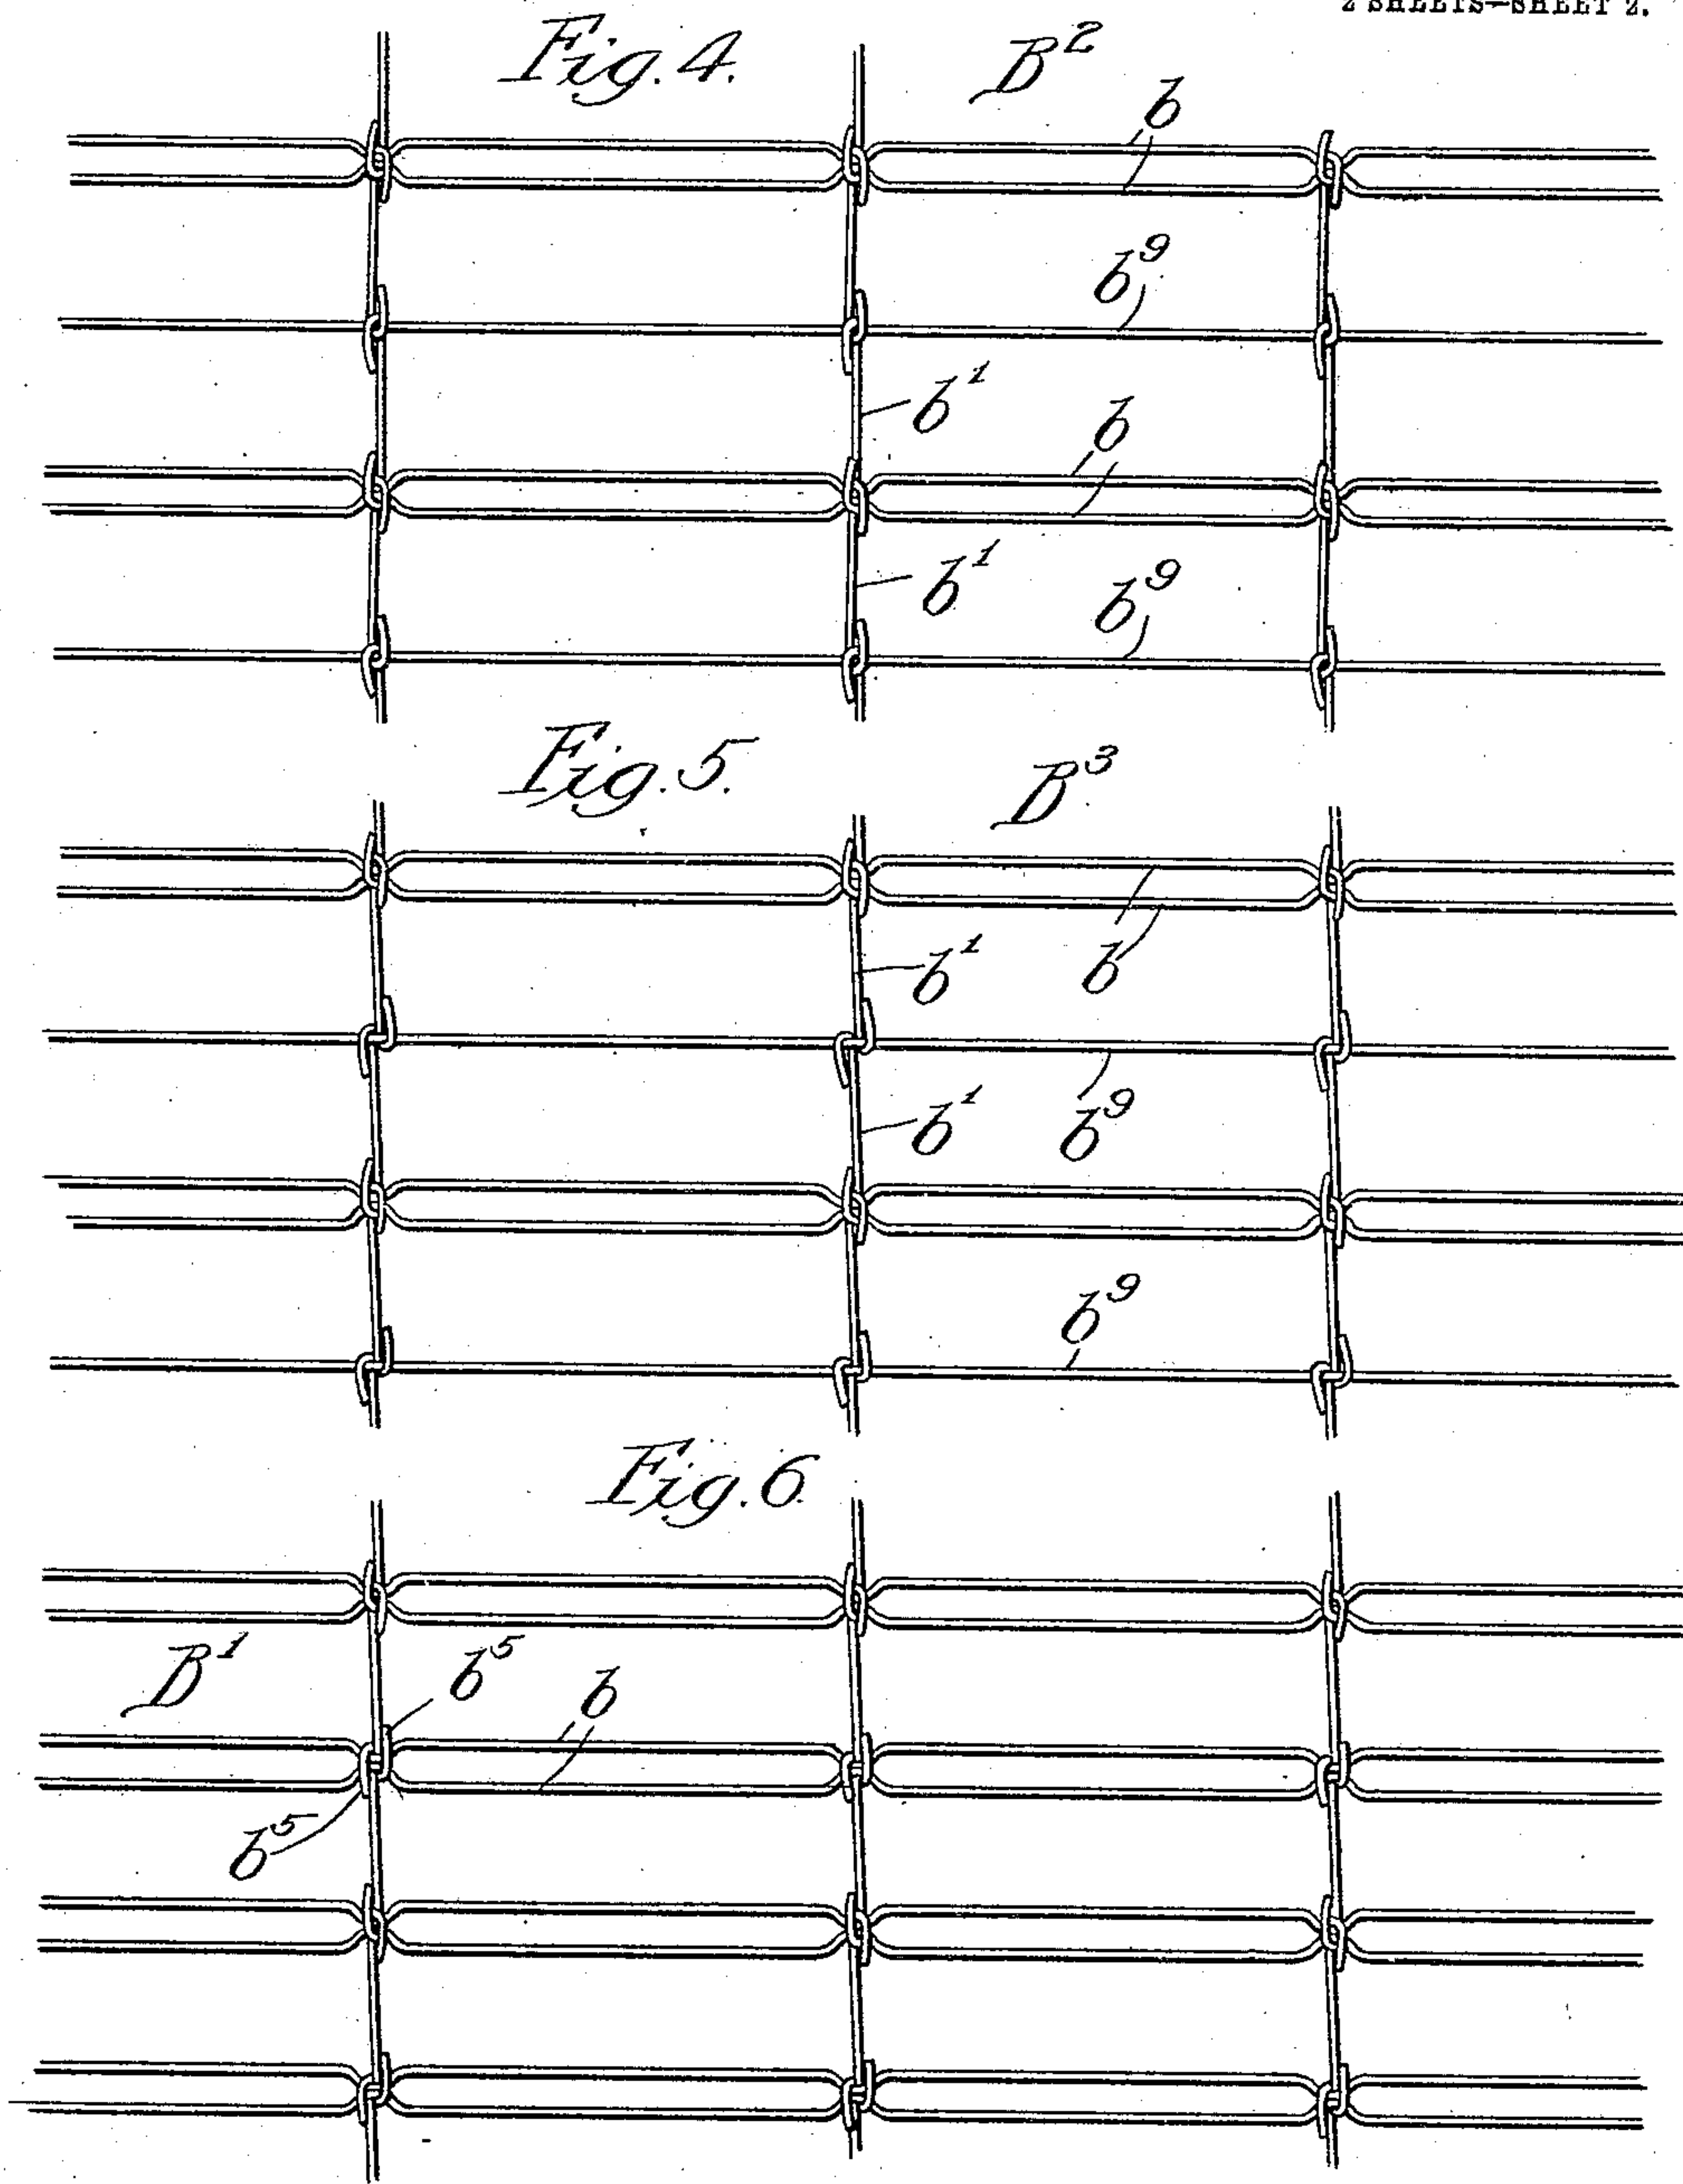 2 SHEETS—SHEET 2.
Fig. 4. B²
b
b⁹
b¹
b
b¹
b⁹
Fig. 5. B³
b¹ b
b¹ b⁹
b⁹
Fig. 6.
B¹ b⁵ b
b⁵